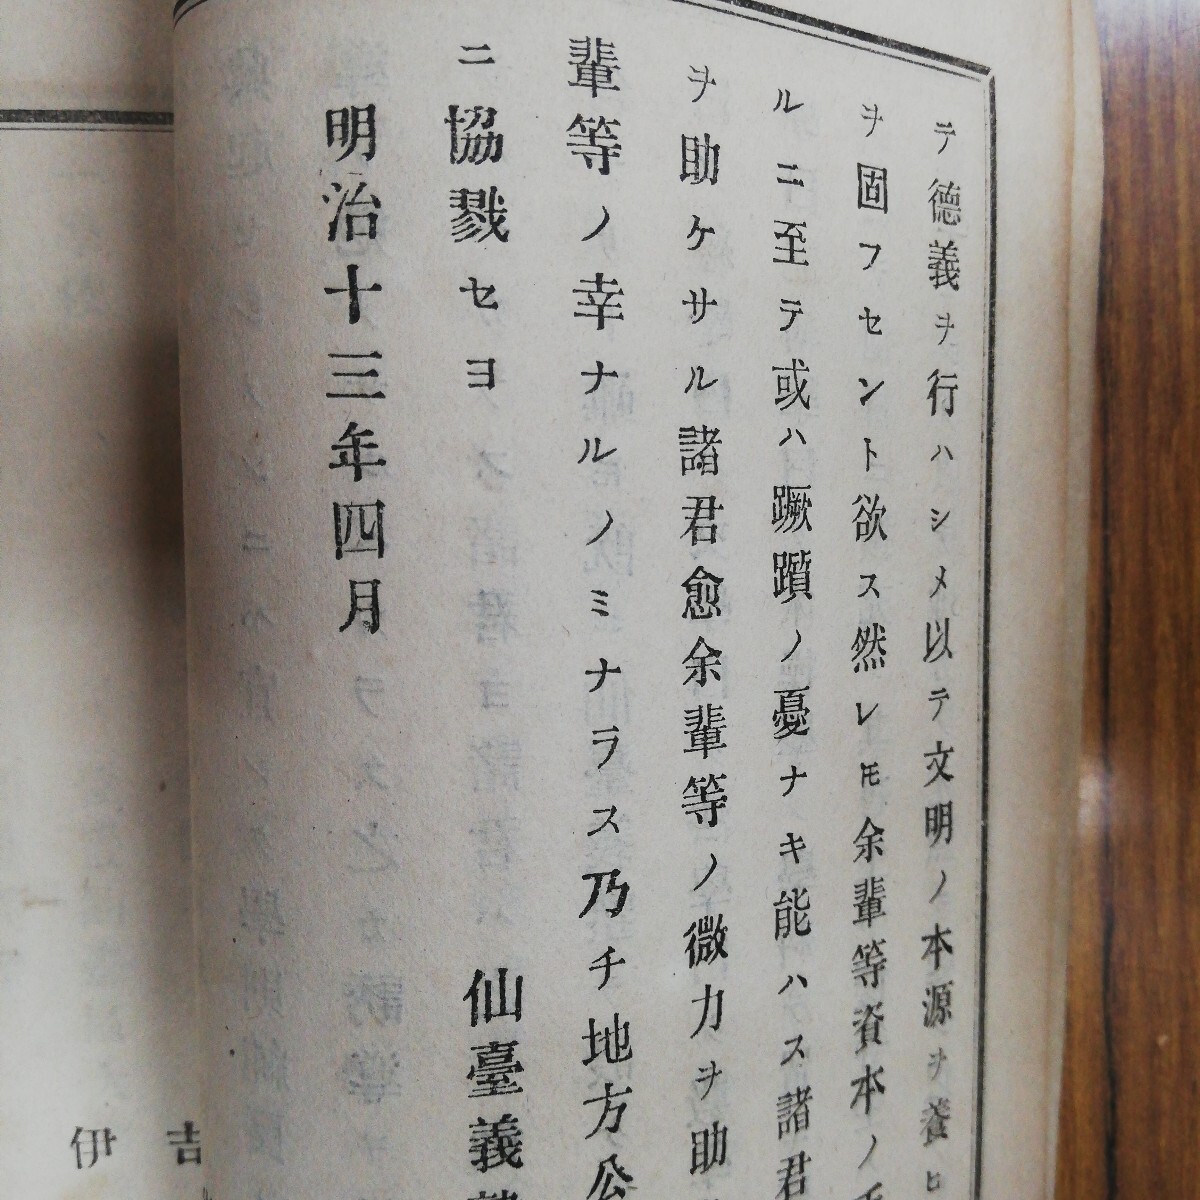 テ德義ヲ行ハシメ以テ文明ノ本源ヲ養ヒ
ヲ固フセント欲ス然レ𪜈余輩等資本ノ
ルニ至テ或ハ蹶躓ノ憂ナキ能ハス諸君
ヲ助ケサル諸君愈余輩等ノ微力ヲ助
輩等ノ幸ナルノミナラス乃チ地方公
ニ協戮セヨ
仙臺義
明治十三年四月
吉
伊